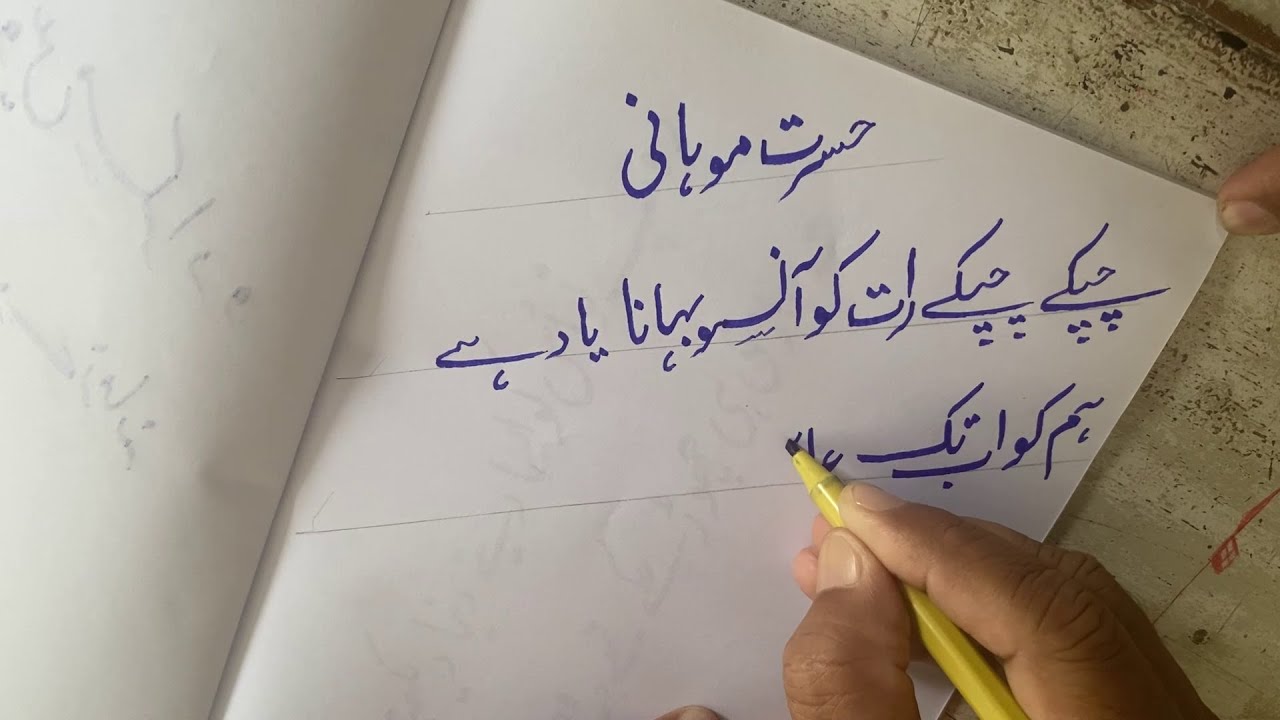 حسرت موہانی
چپکے چپکے رات کو آنسو بہانا یاد ہے
ہم کو اب تک